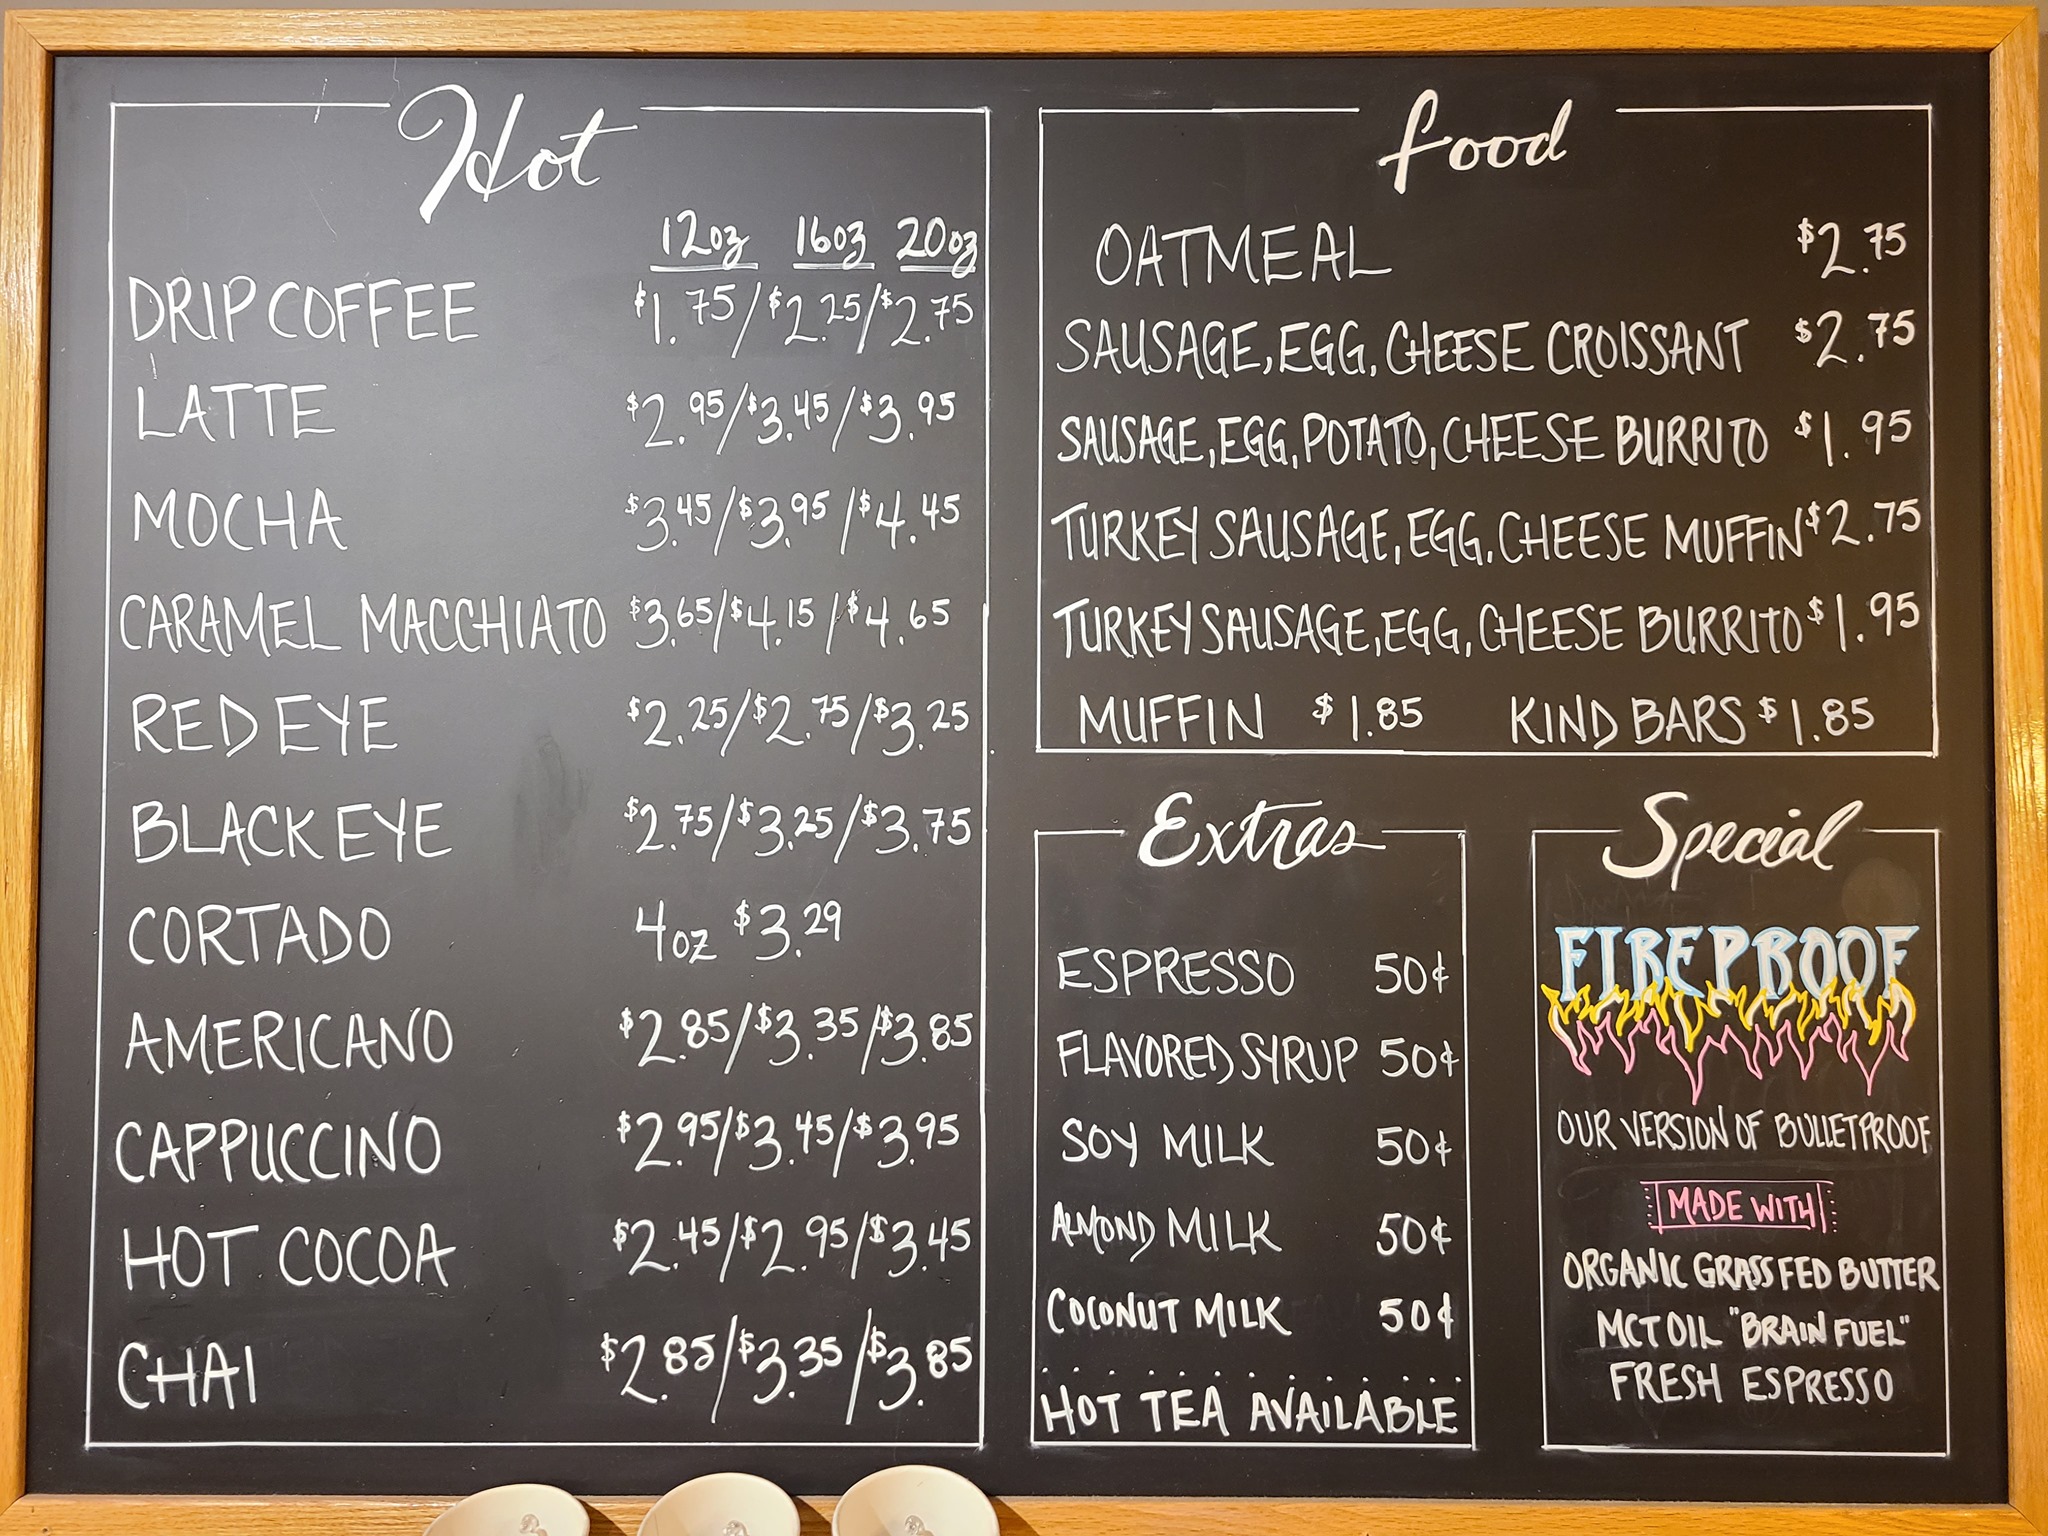 Hot
12oz 16oz 20oz
DRIP COFFEE $1.75/$2.25/$2.75
LATTE $2.95/$3.45/$3.95
MOCHA $3.45/$3.95/$4.45
CARAMEL MACCHIATO $3.65/$4.15/$4.65
RED EYE $2.25/$2.75/$3.25
BLACK EYE $2.75/$3.25/$3.75
CORTADO 4oz $3.29
AMERICANO $2.85/$3.35/$3.85
CAPPUCCINO $2.95/$3.45/$3.95
HOT COCOA $2.45/$2.95/$3.45
CHAI $2.85/$3.35/$3.85
food
OATMEAL $2.75
SAUSAGE, EGG, CHEESE CROISSANT $2.75
SAUSAGE, EGG, POTATO, CHEESE BURRITO $1.95
TURKEY SAUSAGE, EGG, CHEESE MUFFIN $2.75
TURKEY SAUSAGE, EGG, CHEESE BURRITO $1.95
MUFFIN $1.85 KIND BARS $1.85
Extras
ESPRESSO 50¢
FLAVORED SYRUP 50¢
SOY MILK 50¢
ALMOND MILK 50¢
COCONUT MILK 50¢
HOT TEA AVAILABLE
Special
FIREPROOF
OUR VERSION OF BULLETPROOF
MADE WITH
ORGANIC GRASS FED BUTTER
MCT OIL "BRAIN FUEL"
FRESH ESPRESSO